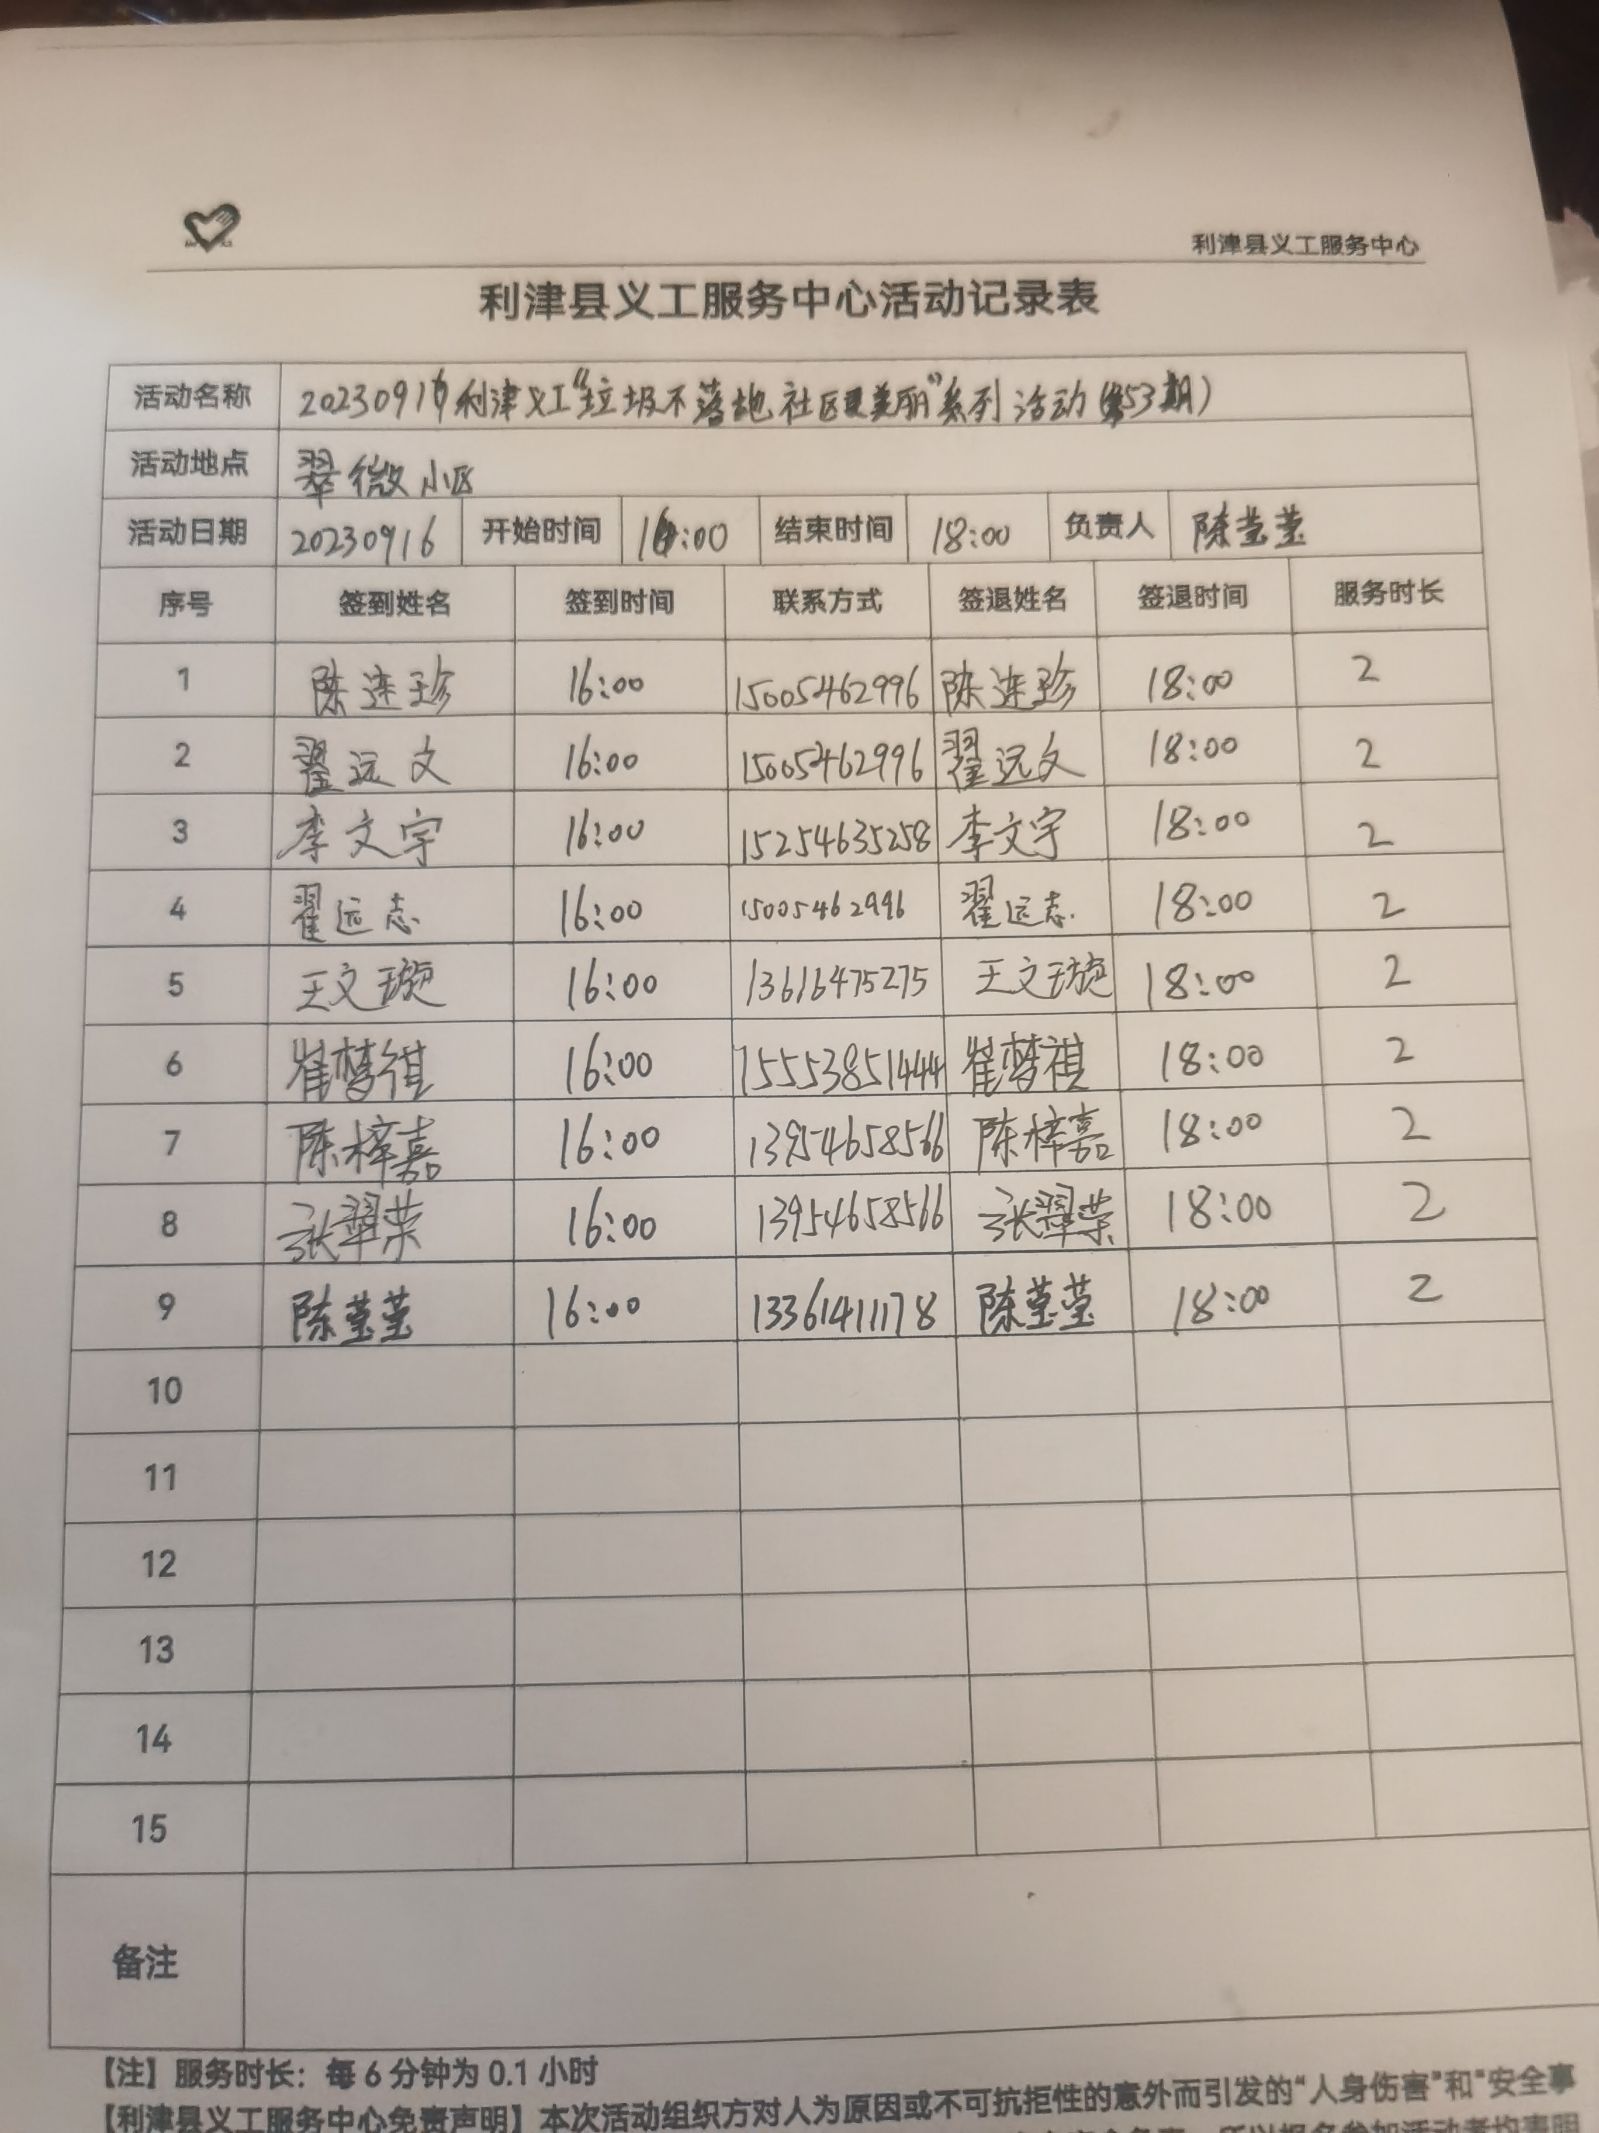 利津县义工服务中心
利津县义工服务中心活动记录表
活动名称 20230916利津义工“垃圾不落地 社区更美丽”系列活动(第53期)
活动地点 翠微小区
活动日期 20230916 开始时间 16:00 结束时间 18:00 负责人 陈莹莹
序号 签到姓名 签到时间 联系方式 签退姓名 签退时间 服务时长
1 陈连珍 16:00 15005462996 陈连珍 18:00 2
2 翟远文 16:00 15005462996 翟远文 18:00 2
3 李文宇 16:00 15254635258 李文宇 18:00 2
4 翟远志 16:00 15005462996 翟远志 18:00 2
5 王文璇 16:00 13616475275 王文璇 18:00 2
6 崔梦祺 16:00 15553851444 崔梦祺 18:00 2
7 陈梓嘉 16:00 13954658566 陈梓嘉 18:00 2
8 张翠荣 16:00 13954658566 张翠荣 18:00 2
9 陈莹莹 16:00 13361411178 陈莹莹 18:00 2
10
11
12
13
14
15
备注
【注】服务时长：每6分钟为0.1小时
【利津县义工服务中心免责声明】本次活动组织方对人为原因或不可抗拒性的意外而引发的“人身伤害”和“安全事